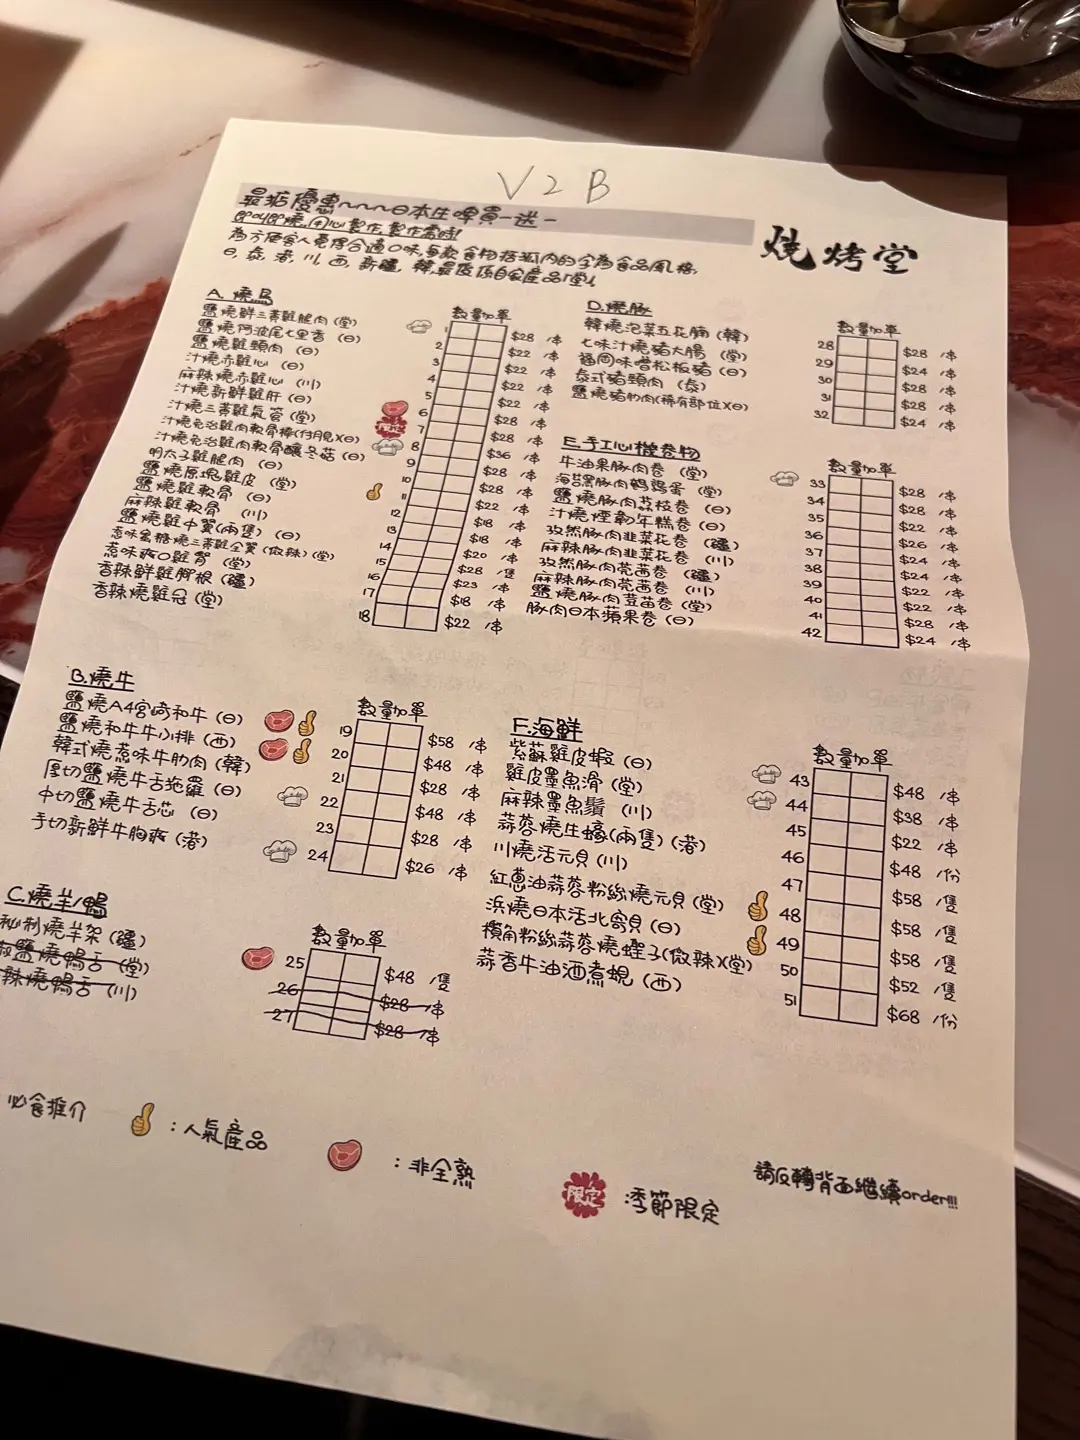 V2B
最掂優惠~~~日本生啤買一送一
即叫即燒,用心製作,製作需時!
為方便客人尋得合適口味,每款食物括弧內的字為食品風格,
日,泰,港,川,西,新疆,韓,最後係自家產品「堂」!
燒烤堂
A.燒鳥
數量加單
鹽燒鮮三黃雞腿肉(堂) 1 $28 /串
鹽燒阿波尾七里香(日) 2 $22 /串
鹽燒雞頸肉(日) 3 $22 /串
汁燒赤雞心(日) 4 $22 /串
麻辣燒赤雞心(川) 5 $22 /串
汁燒新鮮雞肝(日) 6 $28 /串
汁燒三黃雞氣管(堂) 限定 7 $28 /串
汁燒免治雞肉軟骨棒(付月見)(日) 8 $36 /串
汁燒免治雞肉軟骨釀冬菇(日) 9 $28 /串
明太子雞腿肉(日) 10 $28 /串
鹽燒原塊雞皮(堂) 11 $22 /串
鹽燒雞軟骨(日) 12 $18 /串
麻辣雞軟骨(川) 13 $18 /串
鹽燒雞中翼(兩隻)(日) 14 $20 /串
惹味蜜糖燒三黃雞全翼(微辣)(堂) 15 $28 /隻
惹味爽口雞腎(堂) 16 $23 /串
香辣鮮雞腳根(疆) 17 $18 /串
香辣燒雞冠(堂) 18 $22 /串
B.燒牛
數量加單
鹽燒A4宮崎和牛(日) 19 $58 /串
鹽燒和牛牛小排(西) 20 $48 /串
韓式燒惹味牛肋肉(韓) 21 $28 /串
厚切鹽燒牛舌拖羅(日) 22 $48 /串
中切鹽燒牛舌芯(日) 23 $28 /串
手切新鮮牛胸爽(港) 24 $26 /串
C.燒羊/鴨
數量加單
秘制燒羊架(疆) 25 $48 /隻
椒鹽燒鴨舌(堂) 26 $28 /串
辣燒鴨舌(川) 27 $28 /串
D.燒豚
數量加單
韓燒泡菜五花腩(韓) 28 $28 /串
七味汁燒豬大腸(堂) 29 $24 /串
福岡味噌松板豬(日) 30 $28 /串
泰式豬頸肉(泰) 31 $28 /串
鹽燒豬枌肉(稀有部位)(日) 32 $24 /串
E.手工心機卷物
數量加單
牛油果豚肉卷(堂) 33 $28 /串
海苔黑豚肉鵪鶉蛋(堂) 34 $28 /串
鹽燒豚肉荔枝卷(日) 35 $22 /串
汁燒煙韌年糕卷(日) 36 $26 /串
孜然豚肉韭菜花卷(疆) 37 $24 /串
麻辣豚肉韭菜花卷(川) 38 $24 /串
孜然豚肉芫茜卷(疆) 39 $22 /串
麻辣豚肉芫茜卷(川) 40 $22 /串
鹽燒豚肉荳苗卷(堂) 41 $28 /串
豚肉日本蘋果卷(日) 42 $24 /串
F.海鮮
數量加單
紫蘇雞皮蝦(日) 43 $48 /串
雞皮墨魚滑(堂) 44 $38 /串
麻辣墨魚鬚(川) 45 $22 /串
蒜蓉燒生蠔(兩隻)(港) 46 $48 /份
川燒活元貝(川) 47 $58 /隻
紅蔥油蒜蓉粉絲燒元貝(堂) 48 $58 /隻
浜燒日本活北寄貝(日) 49 $58 /隻
欖角粉絲蒜蓉燒蟶子(微辣)(堂) 50 $52 /隻
蒜香牛油酒煮蜆(西) 51 $68 /份
必食推介
:人氣產品
:非全熟
限定 :季節限定
請反轉背面繼續order!!!